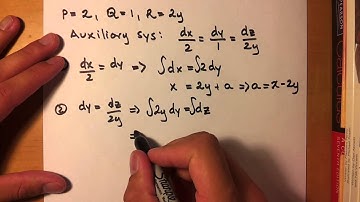 P=2, Q=1, R=2y
Auxiliary sys: dx/2 = dy/1 = dz/2y
dx/2 = dy ⇒ ∫dx = ∫2dy
x = 2y + a ⇒ a = x - 2y
② dy = dz/2y ⇒ ∫2y dy = ∫dz
=
PEARSON